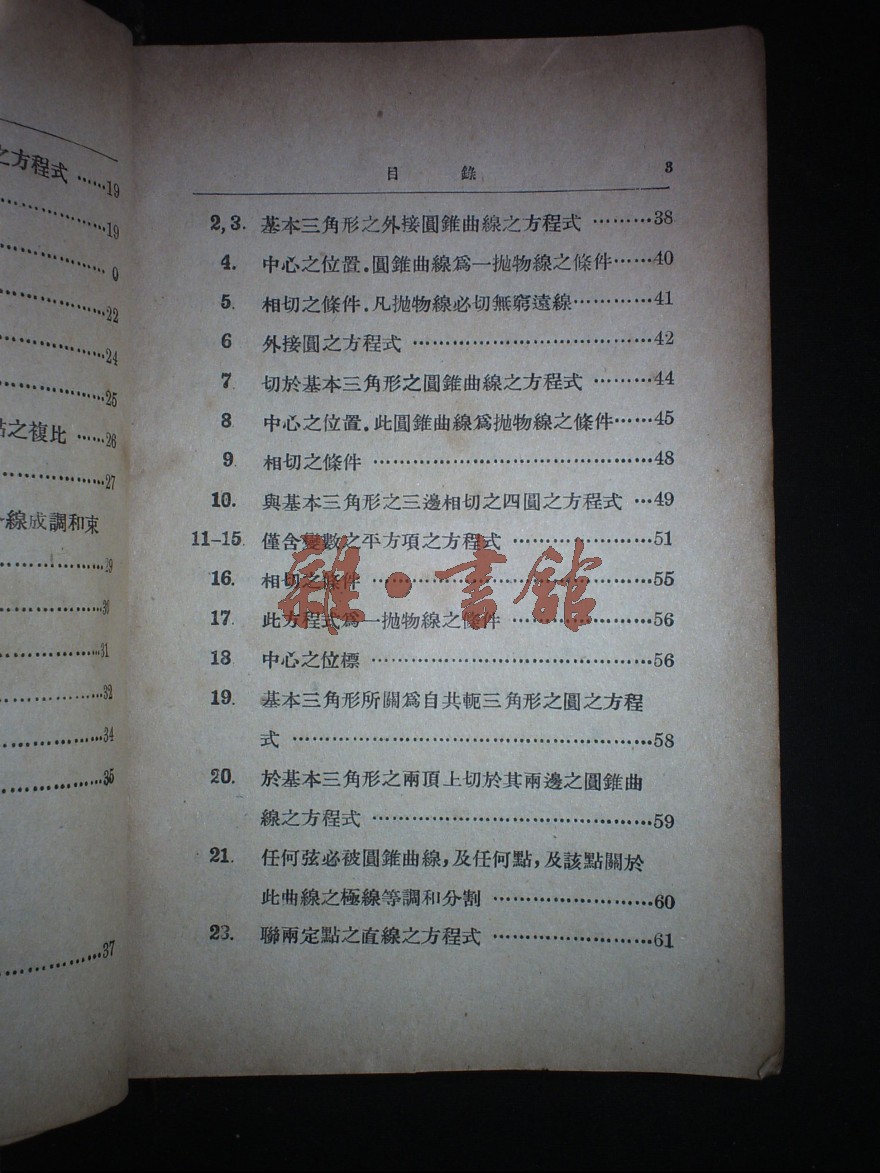 之方程式 ……19
……19
……0
……22
……24
……25
之複比 ……26
……27
線成調和束
……29
……30
……31
……32
……34
……35
……37
目 錄 3
2, 3. 基本三角形之外接圓錐曲線之方程式 ………38
4. 中心之位置.圓錐曲線爲一拋物線之條件……40
5. 相切之條件.凡拋物線必切無窮遠線…………41
6 外接圓之方程式 …………………………………42
7 切於基本三角形之圓錐曲線之方程式 ………44
8 中心之位置.此圓錐曲線爲拋物線之條件……45
9 相切之條件 ………………………………………48
10. 與基本三角形之三邊相切之四圓之方程式 …49
11–15. 僅含變數之平方項之方程式 …………………51
16. 相切之條件 ………………………………………55
17. 此方程式爲一拋物線之條件 …………………56
18 中心之位標 ………………………………………56
19. 基本三角形所關爲自共軛三角形之圓之方程
式 …………………………………………………58
20. 於基本三角形之兩頂上切於其兩邊之圓錐曲
線之方程式 ………………………………………59
21. 任何弦必被圓錐曲線,及任何點,及該點關於
此曲線之極線等調和分割 ……………………60
23. 聯兩定點之直線之方程式 ……………………61
雜·書館